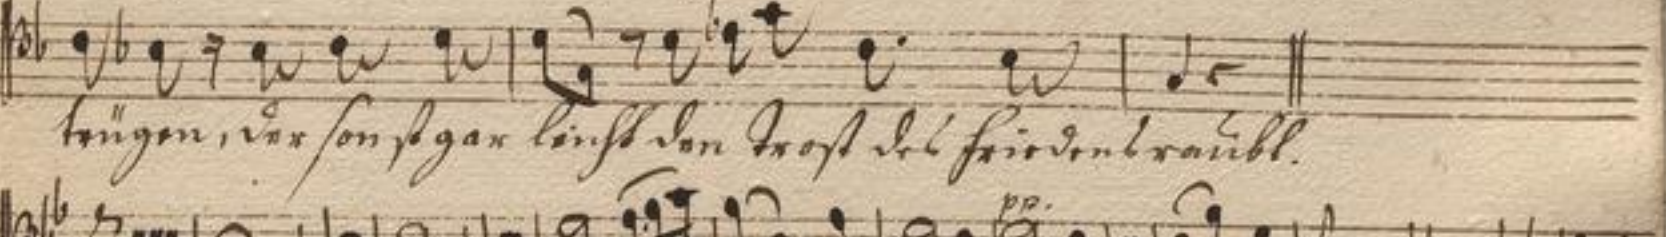 trügen, der sonst gar leicht den Trost des Friedens raubt.
pp.